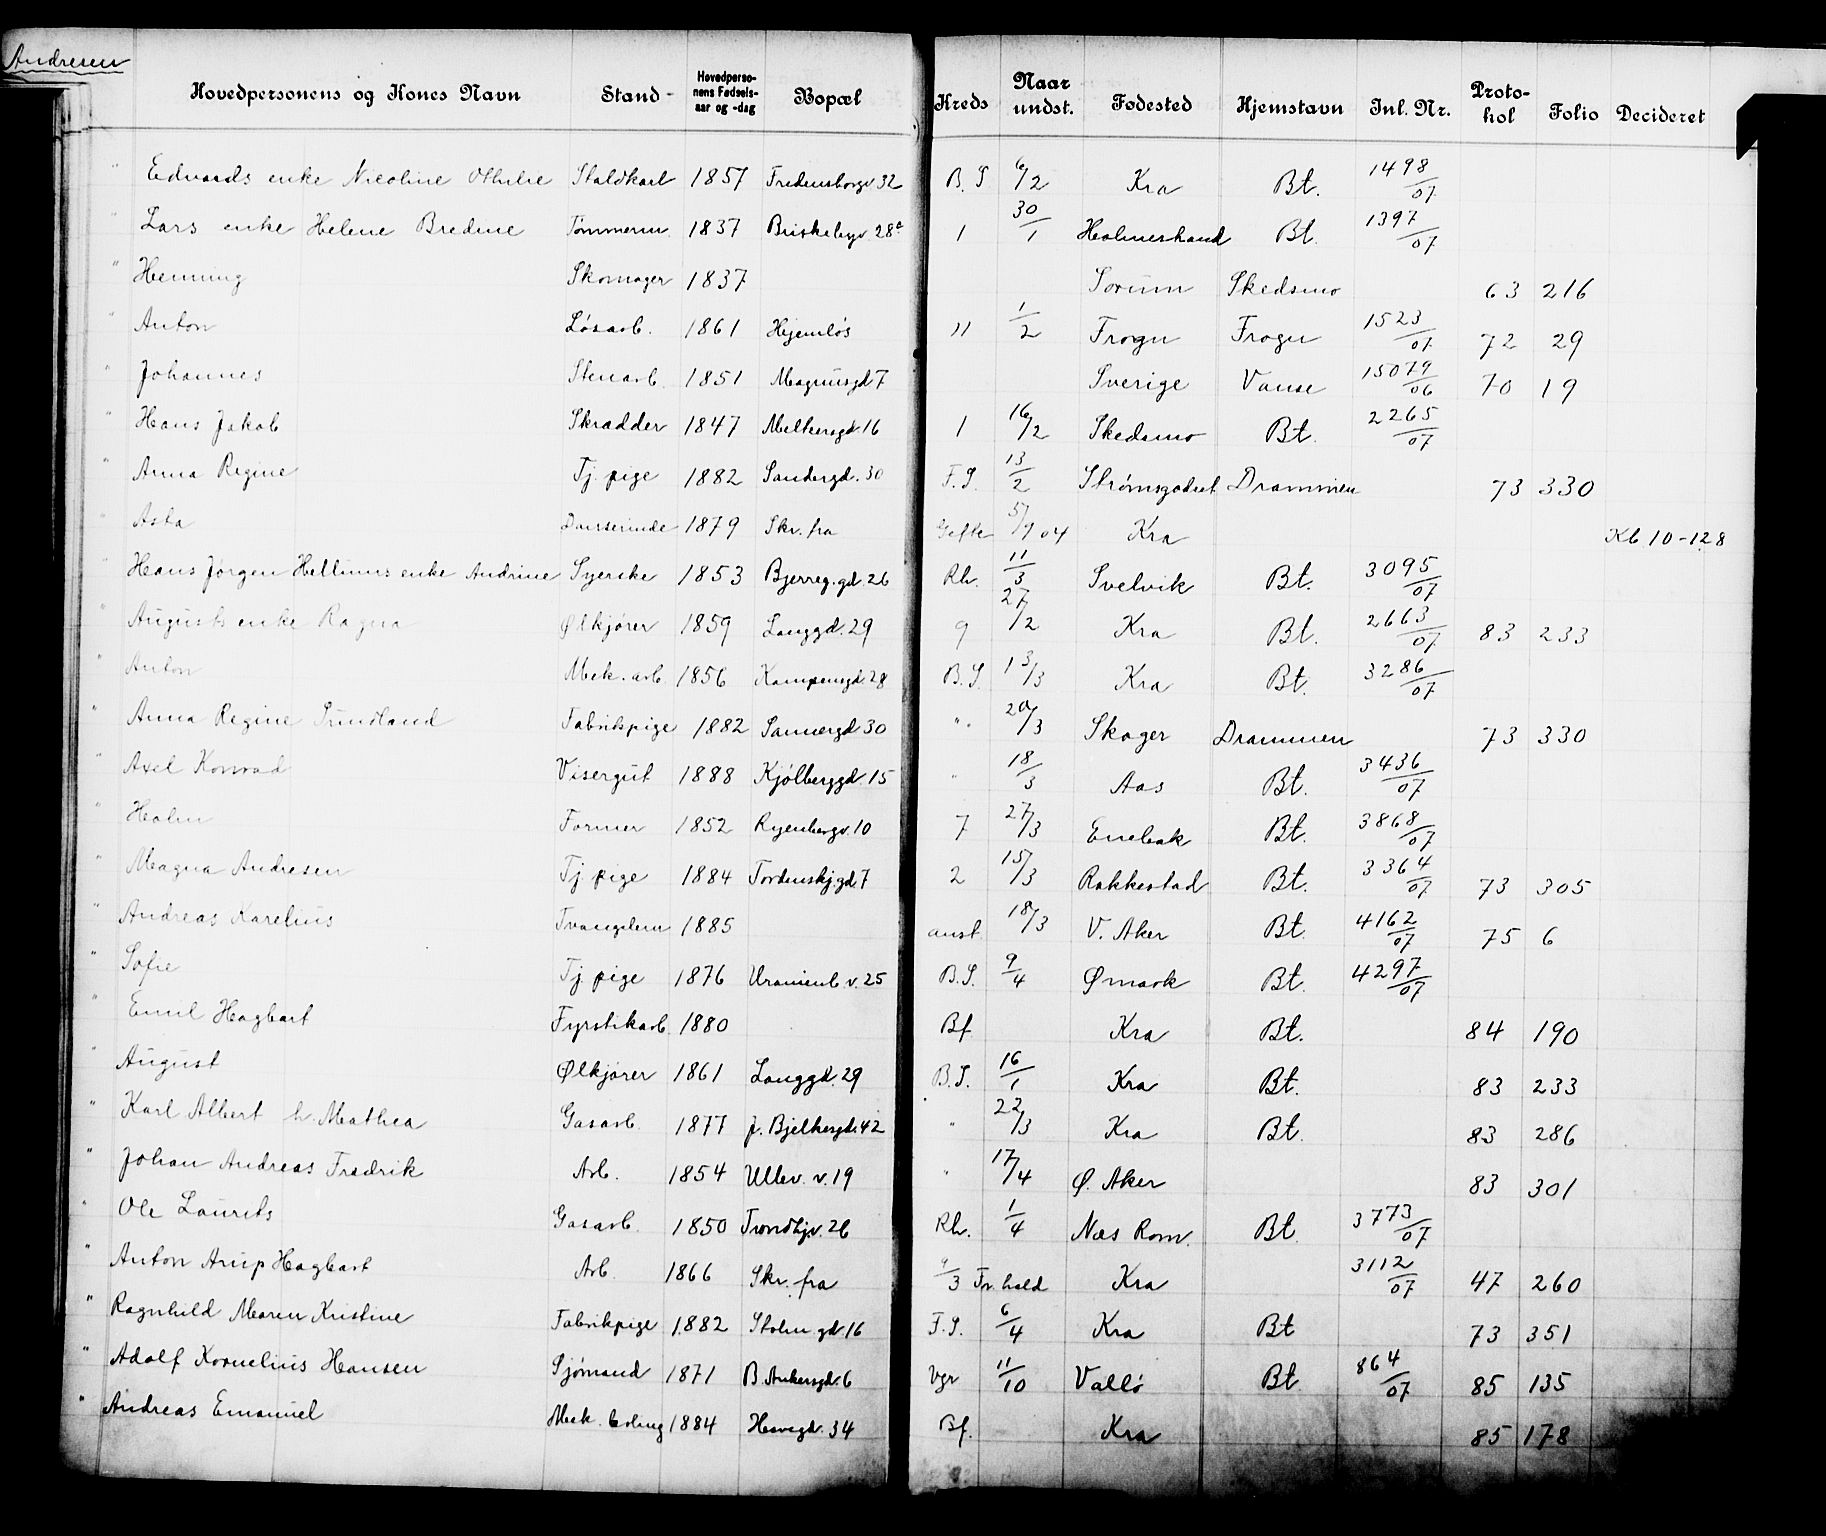 Andresen
Hovedpersonens og Kones Navn Stand Hovedperso-nens Fødsels-aar og -dag Bopæl Kreds Naar undst. Fødested Hjemstavn Inl. Nr. Proto-kol Folio Decideret
" Edvards enke Nicoline Othilie Staldkarl 1857 Fredensborgv 32 B.S 6/2 Kra Bt. 1498/07
" Lars enke Helene Bredine Tømmerm. 1837 Briskebyv 28a 1 30/1 Holmestrand Bt. 1397/07
" Henning Skomager 1837 Sørum Skedsmo 63 216
" Anton Løsarb. 1861 Hjemløs 11 1/2 Frogn Frogn 1523/07 72 29
" Johannes Stenarb. 1851 Magnusgd 7 Sverige Vanse 15079/06 70 19
" Hans Jakob Skrædder 1847 Meltzersgd 16 1 16/2 Skedsmo Bt. 2265/07
" Anna Regine Tj. pige 1882 Sandergd. 30 F.S. 13/2 Strømsgodset Drammen 73 330
" Asta Danserinde 1879 Skr. fra Gifte 5/7 04 Kra Kb 10-128
" Hans Jørgen Hellinus enke Andrine Syerske 1853 Bjerreg.gd. 26 Rh. 11/3 Svelvik Bt. 3095/07
" Augusts enke Ragna Ølkjører 1859 Langgd. 29 9 27/2 Kra Bt. 2663/07 83 233
" Anton Mek. arb. 1856 Kampensgd. 28 B.S. 13/3 Kra Bt. 3286/07
" Anna Regine Sundland Fabrikpige 1882 Sannergd 30 " 20/3 Skoger Drammen 73 330
" Axel Konrad Visergut 1888 Kjølberggd. 15 " 18/3 Aas Bt. 3436/07
" Holm Former 1852 Ryenbergv. 10 7 27/3 Enebak Bt. 3868/07
" Magna Andresen Tj. pige 1884 Tordenskj.gd. 7 2 15/3 Rakkestad Bt. 3364/07 73 305
" Andreas Karelius Tvangslem 1885 anst. 18/3 V. Aker Bt. 4162/07 75 6
" Sofie Tj. pige 1876 Uranienb. v. 25 B.S. 9/4 Ømark Bt. 4297/07
" Emil Hagbart Fyrstikarb. 1880 Bf. Kra Bt. 84 190
" August Ølkjører 1861 Langgd. 29 B.S. 16/1 Kra Bt. 83 233
" Karl Albert h. Mathea Gasarb. 1877 J. Bjelkesgd. 42 " 22/3 Kra Bt. 83 286
" Johan Andreas Fredrik Arb. 1854 Ullev. v. 19 " 17/4 Ø. Aker 83 301
" Ole Laurits Gasarb. 1850 Trondhjv. 26 Rh. 1/4 Næs Rom. Bt. 3773/07
" Anton Arup Hagbart Arb. 1866 Skr. fra 9/3 Fr. hald Kra 3112/07 47 260
" Ragnhild Maren Kristine Fabrikpige 1882 Stolm.gd. 16 F.S. 6/4 Kra Bt 73 351
" Adolf Kornelius Hansen Sjømand 1871 B. Ankersgd. 6 Vgr 11/10 Vallø Bt 864/07 85 135
" Andreas Emanuel Mek. 1884 34 Bf. Kra 85 178